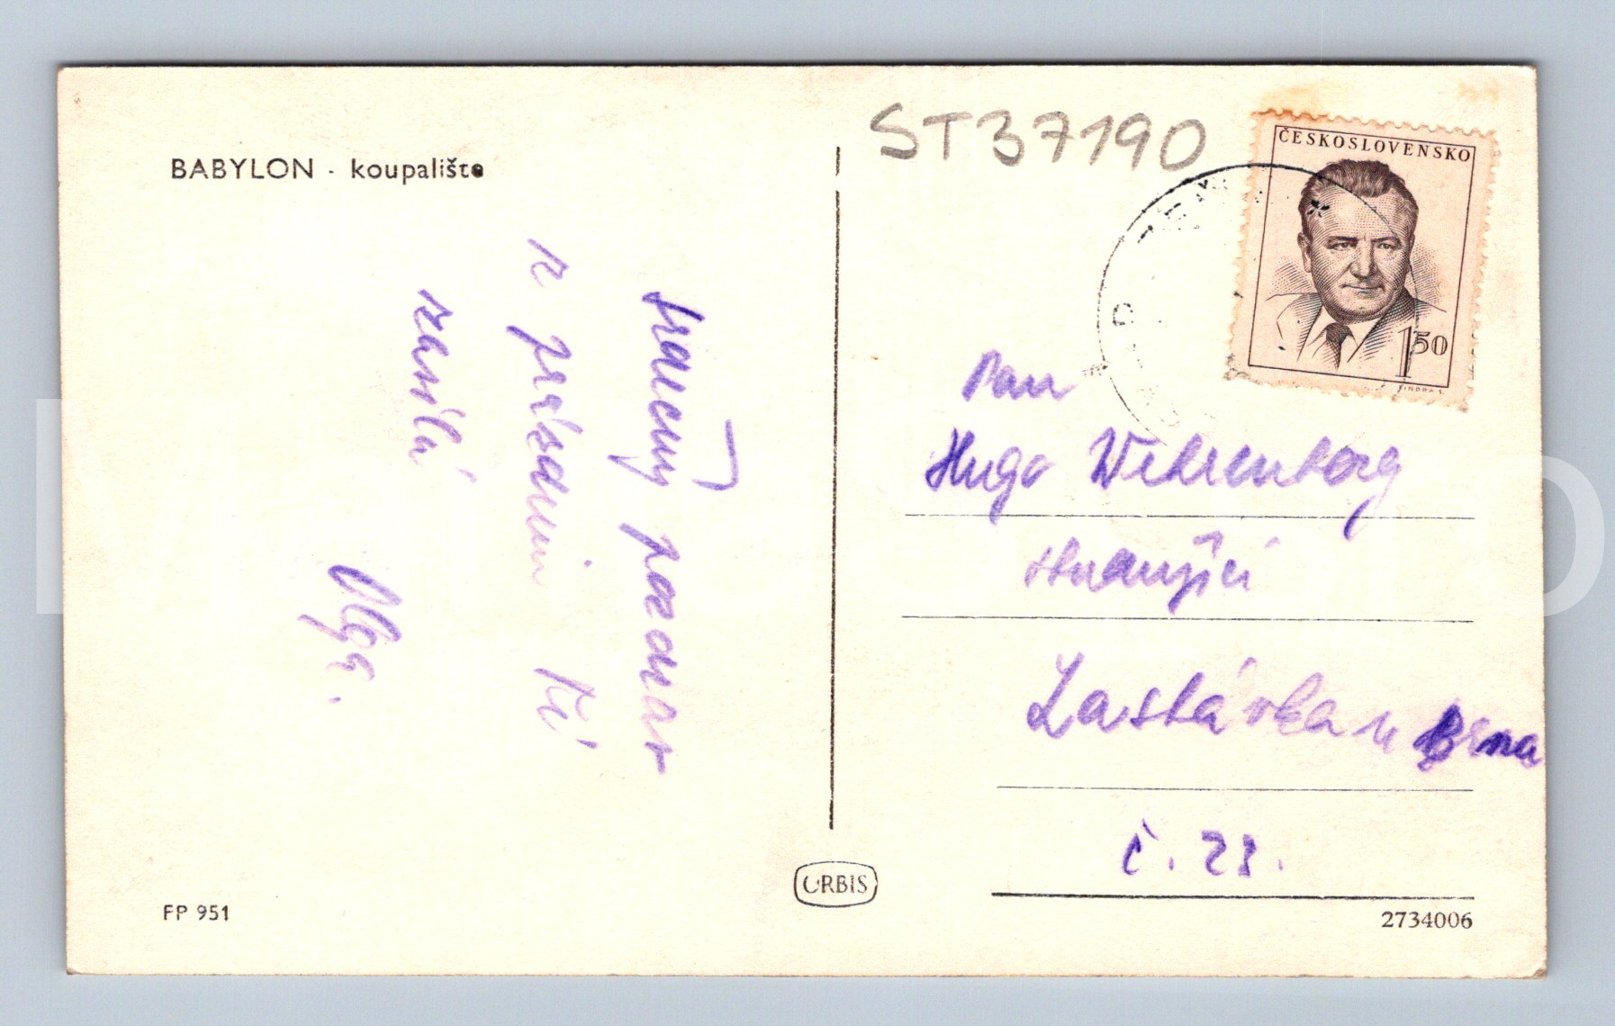 BABYLON - koupaliště
ST37190
ČESKOSLOVENSKO
1 50
Srdečný pozdrav
z prázdnin Ti
zasílá
Olga.
Pan
Hugo Wehrenberg
strojní
Zastávka u Brna
č. 28.
ORBIS
FP 951
2734006